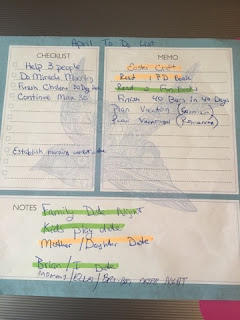 April To Do List
CHECKLIST
Help 3 people
Do Miracle Morning
Finish Chalene 30 Day
Continue Max 30
Establish morning
MEMO
Easter Craft
Read 1 PD Book
Read 2 Fun Books
Finish 40 Bags in 40 Days
Plan Vacation
Plan Vacation
NOTES
Family Date Night
Kids play date
Mother / Daughter Date
Brian / I Date